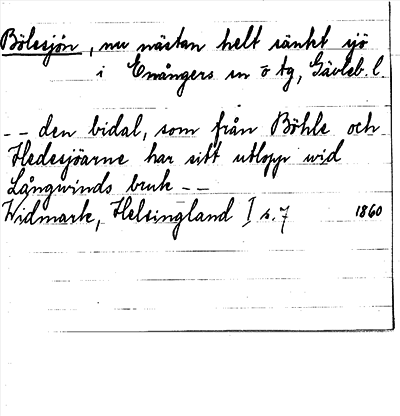 Bölesjön, nu nästan helt sänkt sjö
i Enångers sn o tg, Gävleb. l.
-- den bidal, som från Böhle och
Hedesjöarne har sitt utlopp wid
Långwinds bruk --
Widmark, Helsingland I s. 7 1860